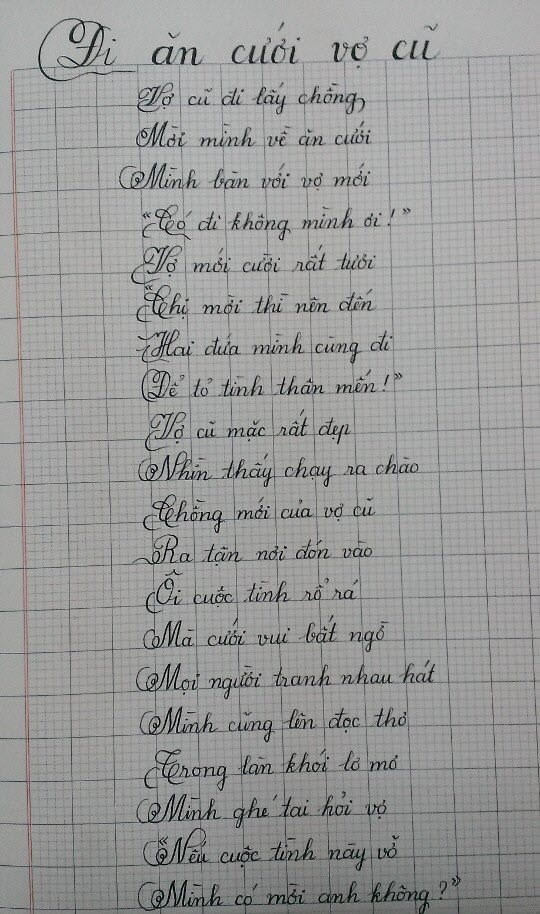 Đi ăn cưới vợ cũ
Vợ cũ đi lấy chồng,
Mời mình về ăn cưới
Mình bàn với vợ mới
"Có đi không mình ơi!"
Vợ mới cười rất tươi
"Chị mời thì nên đến
Hai đứa mình cùng đi
Để tỏ tình thân mến!"
Vợ cũ mặc rất đẹp
Nhìn thấy chạy ra chào
Chồng mới của vợ cũ
Ra tận nơi đón vào
Ôi cuộc tình rổ rá
Mà cưới vui bất ngờ
Mọi người tranh nhau hát
Mình cũng lên đọc thơ
Trong làn khói lơ mơ
Mình ghé tai hỏi vợ
"Nếu cuộc tình này vỡ
Mình có mời anh không?"